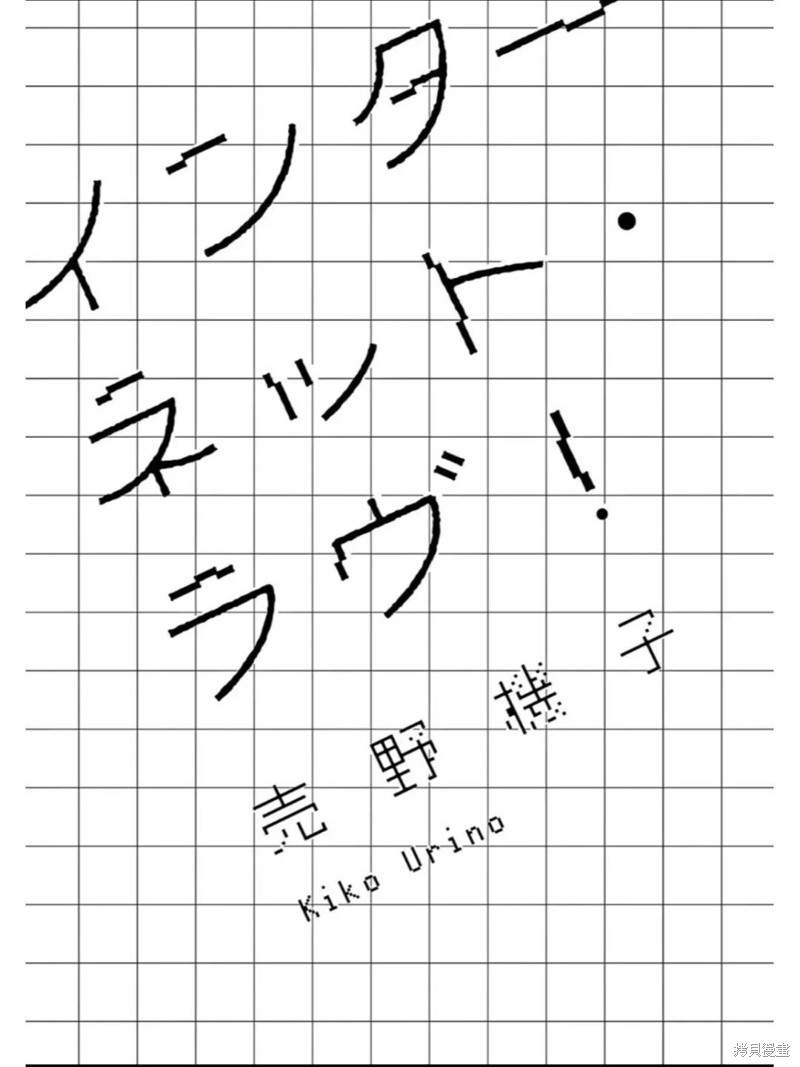 インター
ネット・
ラヴ!
売野機子
Kiko Urino
拷貝漫畫